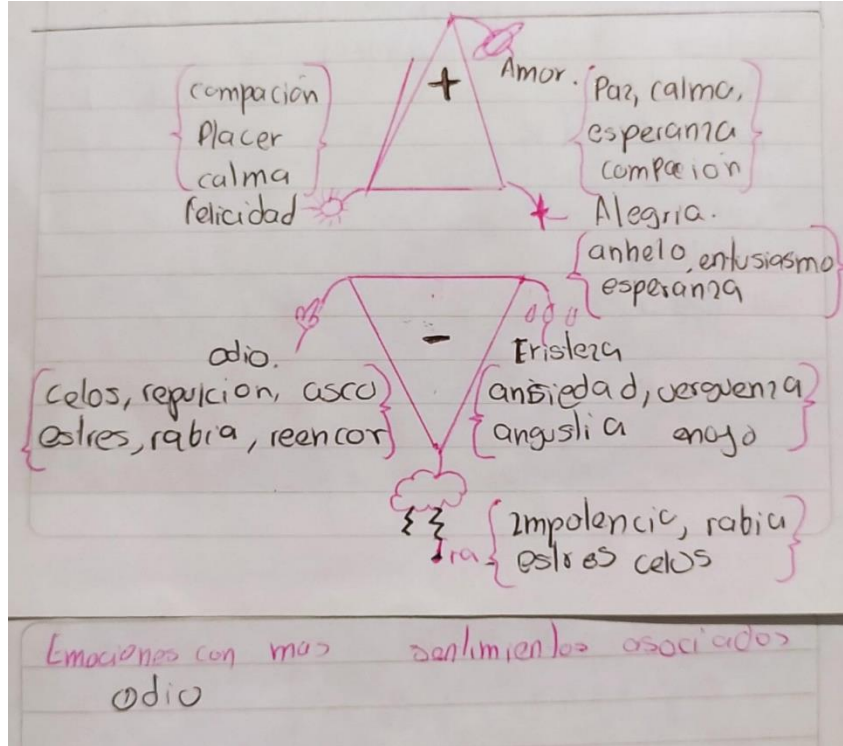 +
Amor.
compación
Placer
calma
felicidad
Paz, calma,
esperanza
compacion
Alegria.
anhelo, entusiasmo
esperanza
-
odio.
celos, repulcion, asco
estres, rabia, reencor
tristeza
ansiedad, verguenza
angustia enojo
ira
Impotencia, rabia
estres celos
Emociones con mas sentimientos asociados
odio